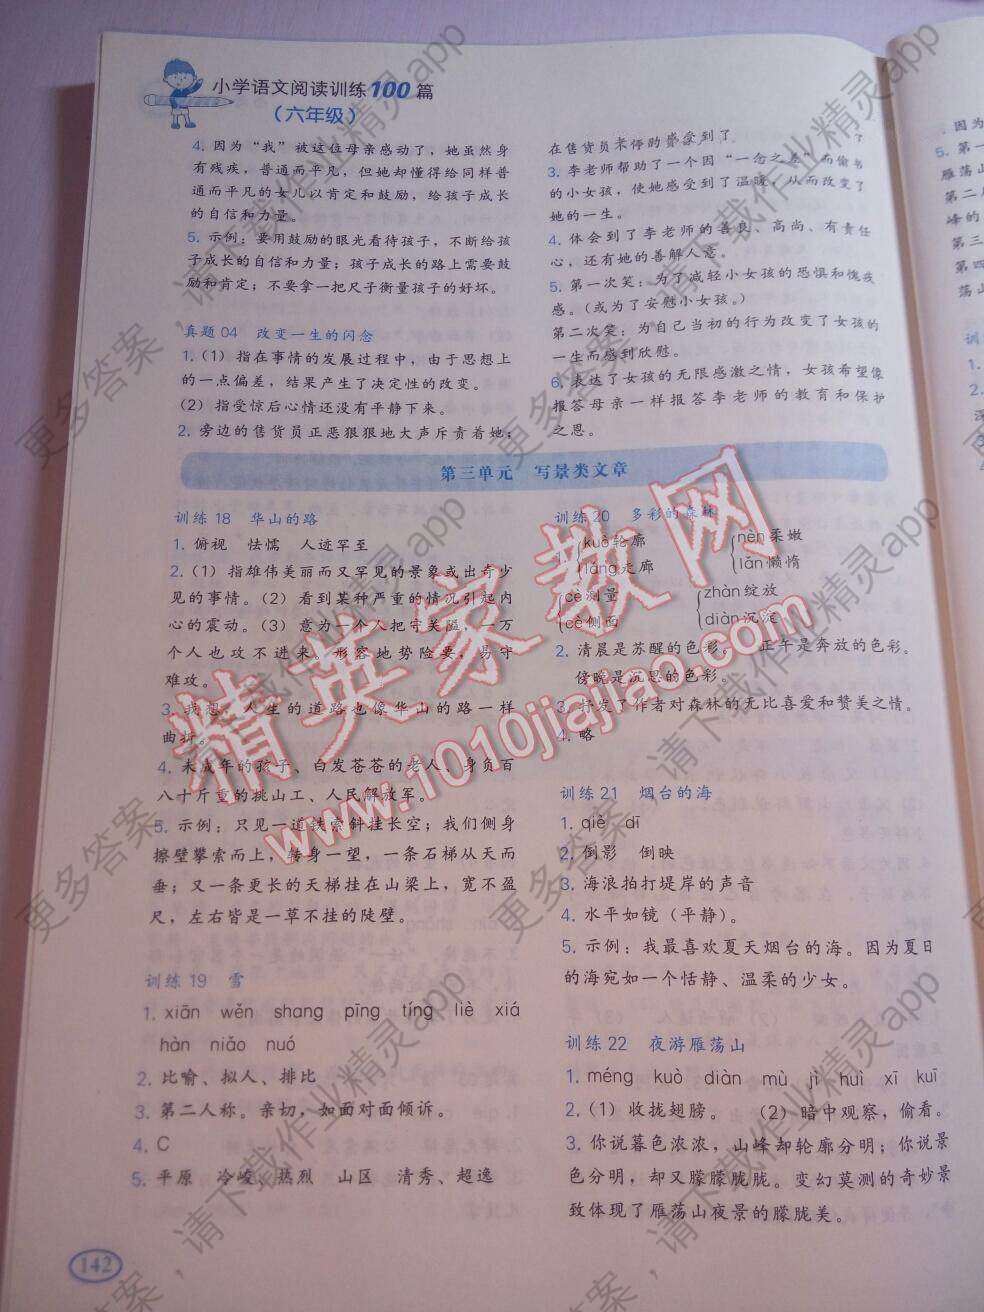 小学语文阅读训练100篇
（六年级）
4. 因为“我”被这位母亲感动了，她虽然身
有残疾，普通而平凡，但她却懂得给同样普
通而平凡的女儿以肯定和鼓励，给孩子成长
的自信和力量。
5. 示例：要用鼓励的眼光看待孩子，不断给孩
子成长的自信和力量；孩子成长的路上需要鼓
励和肯定；不要拿一把尺子衡量孩子的好坏。
真题04 改变一生的闪念
1.（1）指在事情的发展过程中，由于思想上
的一点偏差，结果产生了决定性的改变。
（2）指受惊后心情还没有平静下来。
2. 旁边的售货员正恶狠狠地大声斥责着她；
在售货员
3. 李老师帮助了一个因“一念之差”而偷书
的小女孩，使她感受到了温暖，从而改变了
她的一生。
4. 体会到了李老师的善良、高尚、有责任
心，还有她的善解人意。
5. 第一次笑：为了减轻小女孩的恐惧和愧疚
感。（或为了安慰小女孩。）
第二次笑：为自己当初的行为改变了女孩的
一生而感到欣慰。
6. 表达了女孩的无限感激之情，女孩希望像
报答母亲一样报答李老师的教育和保护
之恩。
第三单元 写景类文章
训练18 华山的路
1. 俯视 怯懦 人迹罕至
2.（1）指雄伟美丽而又罕见的景象或出奇少
见的事情。（2）看到某种严重的情况引起内
心的震动。（3）意为一个人把守关隘，一万
个人也攻不进来。形容地势险要，易守
难攻。
3. 我想，人生的道路也像华山的路一样
曲折。
4. 未成年的孩子、白发苍苍的老人、身负百
八十斤重的挑山工、人民解放军。
5. 示例：只见一道铁索斜挂长空；我们侧身
擦壁攀索而上，转身一望，一条石梯从天而
垂；又一条更长的天梯挂在山梁上，宽不盈
尺，左右皆是一草不挂的陡壁。
训练19 雪
1. xiān wěn shang pīng tíng liè xiá
hàn niǎo nuó
2. 比喻、拟人、排比
3. 第二人称。亲切，如面对面倾诉。
4. C
5. 平原 冷峻、热烈 山区 清秀、超逸
训练20 多彩的森林
1. kuò轮廓 nèn柔嫩
láng走廊 lǎn懒惰
cè测量 zhàn绽放
cè侧面 diàn沉淀
2. 清晨是苏醒的色彩。 正午是奔放的色彩。
傍晚是沉思的色彩。
3. 抒发了作者对森林的无比喜爱和赞美之情。
4. 略
训练21 烟台的海
1. qiè dī
2. 倒影 倒映
3. 海浪拍打堤岸的声音
4. 水平如镜（平静）。
5. 示例：我最喜欢夏天烟台的海。因为夏日
的海宛如一个恬静、温柔的少女。
训练22 夜游雁荡山
1. méng kuò diàn mù jì huì xī kuī
2.（1）收拢翅膀。 （2）暗中观察，偷看。
3. 你说暮色浓浓，山峰却轮廓分明；你说景
色分明，却又朦朦胧胧。变幻莫测的奇妙景
致体现了雁荡山夜景的朦胧美。
142
精英家教网
www.1010jiajiao.com
更多答案，请下载作业精灵app